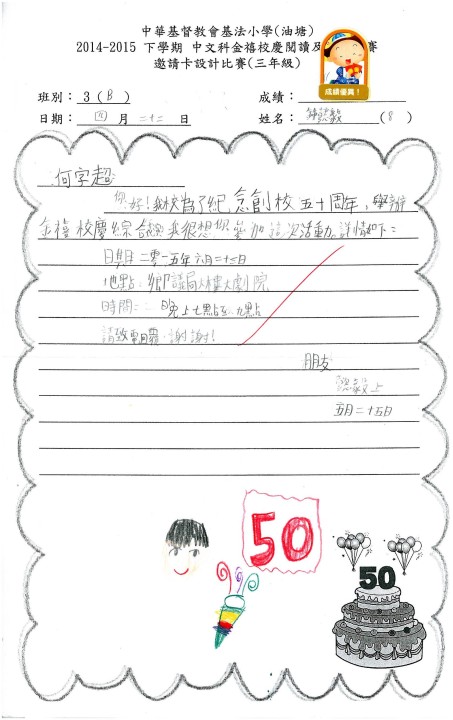 中華基督教會基法小學(油塘)
2014-2015 下學期 中文科金禧校慶閱讀及 賽
邀請卡設計比賽(三年級)
成績優異！
班別： 3 ( B ) 成績：
日期： 四 月 二十二 日 姓名： 懿毅 ( 8 )
何字超
你好！我校為了紀念創校五十周年，舉辦
金禧校慶綜合 我很想您參加這次活動。詳情如下：
日期：二零一五年六月二十三日
地點：鄉議局大樓大劇院
時間：晚上七點至九點
請致電回覆，謝謝！
朋友
懿毅上
五月二十五日
50
50